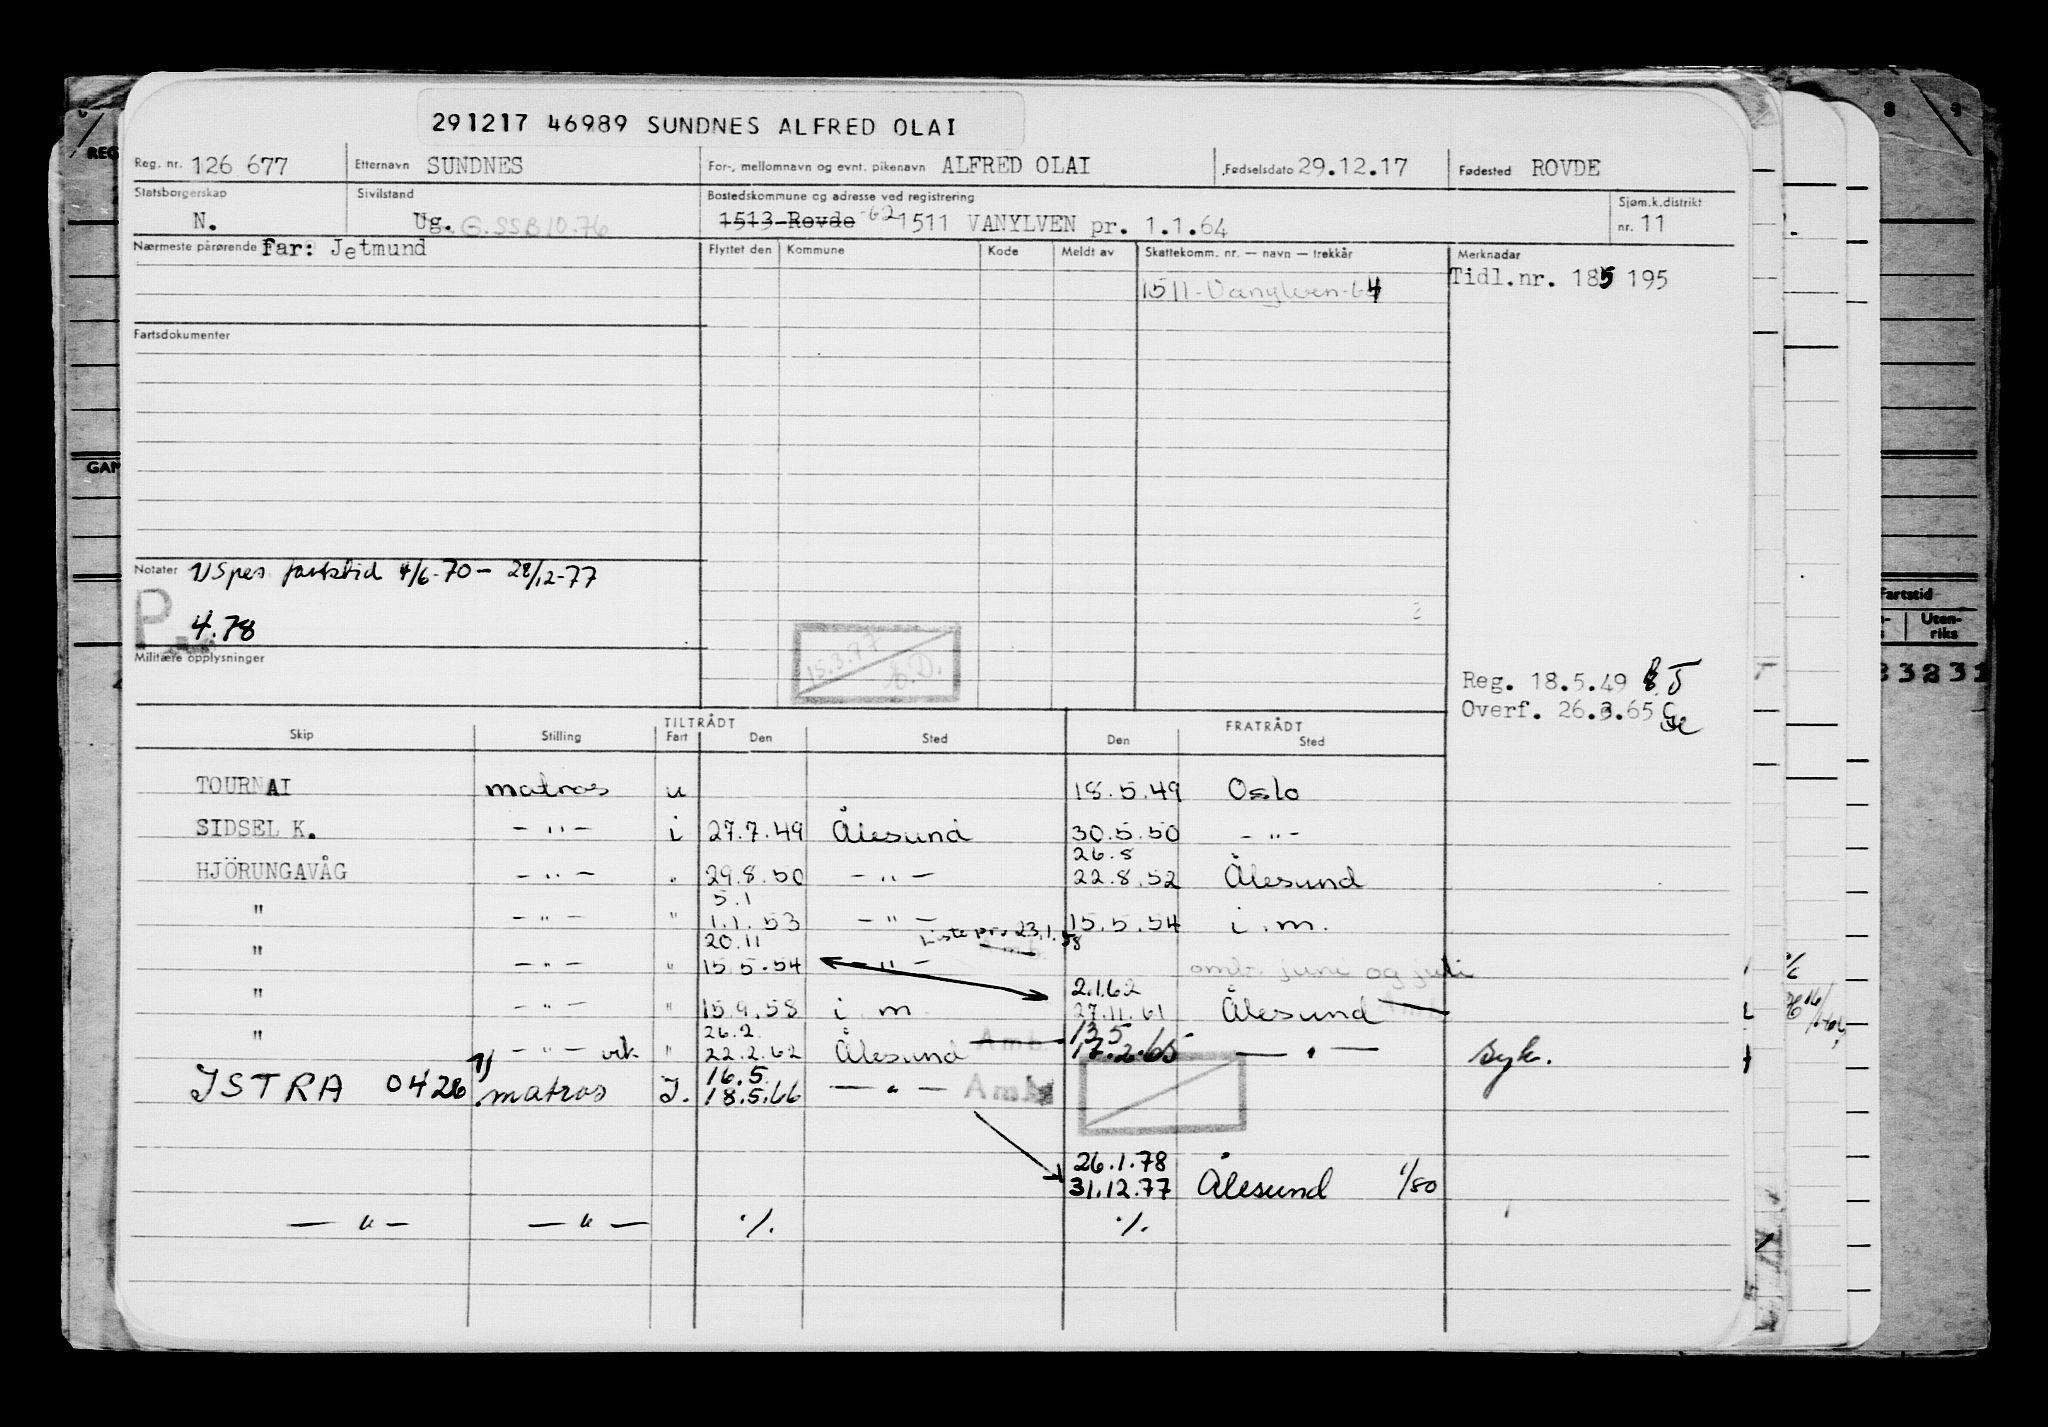 291217 46989 SUNDNES ALFRED OLAI
Reg. nr. 126 677 Etternavn SUNDNES For-, mellomnavn og evnt. pikenavn ALFRED OLAI Fødselsdato 29.12.17 Fødested ROVDE
Statsborgerskap Sivilstand Bostedskommune og adresse ved registrering Sjøm.k.distrikt
N. Ug. G.SSB 10.76 1513 Rovde -62 1511 VANYLVEN pr. 1.1.64 nr. 11
Nærmeste pårørende far: Jetmund Flyttet den Kommune Kode Meldt av Skattekomm. nr. — navn — trekkår Merknadar
1511-Vanylven-64 Tidl.nr. 185 195
Fartsdokumenter
Notater 1) Spes fartstid 4/6-70 - 28/12-77
P
4.78
Militære opplysninger
15.3.77
Reg. 18.5.49
Overf. 26.3.65
TILTRÅDT FRATRÅDT
Skip Stilling Fart Den Sted Den Sted
TOURNAI matros u 18.5.49 Oslo
SIDSEL K. - " - i 27.7.49 Ålesund 30.5.50 - " -
26.8
HJÖRUNGAVÅG - " - " 29.8.50 - " - 22.8.52 Ålesund
5.1
" - " - " 1.1.53 - " - 15.5.54 i. m.
20.11 Liste pr. 23.1.58
" - " - " 15.5.54 - " - omb. juni og juli
2.1.62
" - " - " 15.9.58 i m 27.11.61 Ålesund
26.2. Amb. 13.5
" - " - vik " 22.2.62 Ålesund 17.2.65 - " - Syk.
16.5.
ISTRA 0426 1) matros I. 18.5.66 - " - Amb
26.1.78
31.12.77 Ålesund 1/80
- " - - " - ./. ./.
GAN
Fartstid
Uten-
riks